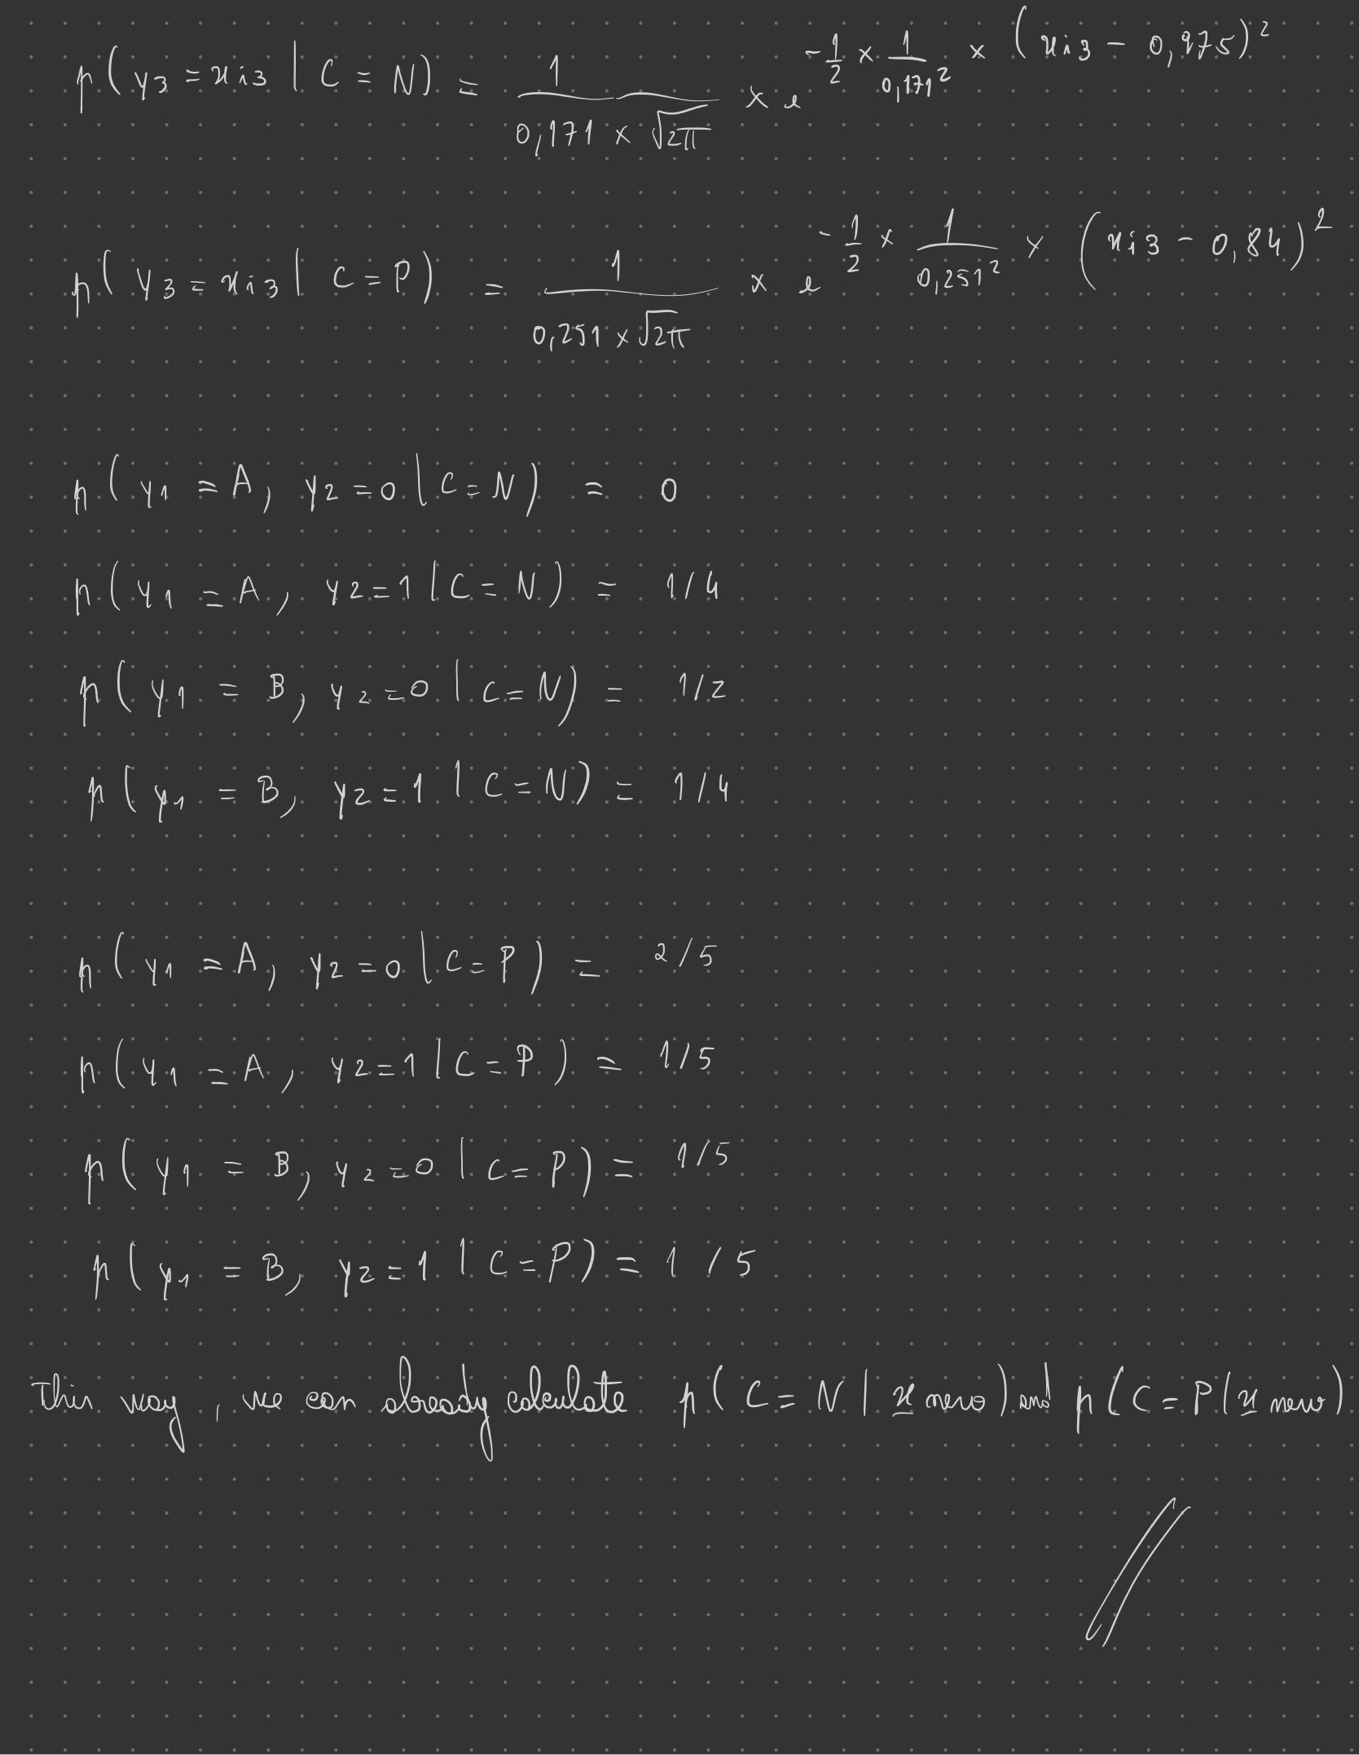 p(y3 = xi3 | C = N) = 1 / (0,171 × √2π) × e^(-1/2 × 1/0,171² × (xi3 - 0,975)²)
p(y3 = xi3 | C = P) = 1 / (0,251 × √2π) × e^(-1/2 × 1/0,251² × (xi3 - 0,84)²)
p(y1 = A, y2 = 0 | C = N) = 0
p(y1 = A, y2 = 1 | C = N) = 1/4
p(y1 = B, y2 = 0 | C = N) = 1/2
p(y1 = B, y2 = 1 | C = N) = 1/4
p(y1 = A, y2 = 0 | C = P) = 2/5
p(y1 = A, y2 = 1 | C = P) = 1/5
p(y1 = B, y2 = 0 | C = P) = 1/5
p(y1 = B, y2 = 1 | C = P) = 1/5
This way, we can already calculate p(C = N | x new) and p(C = P | x new)